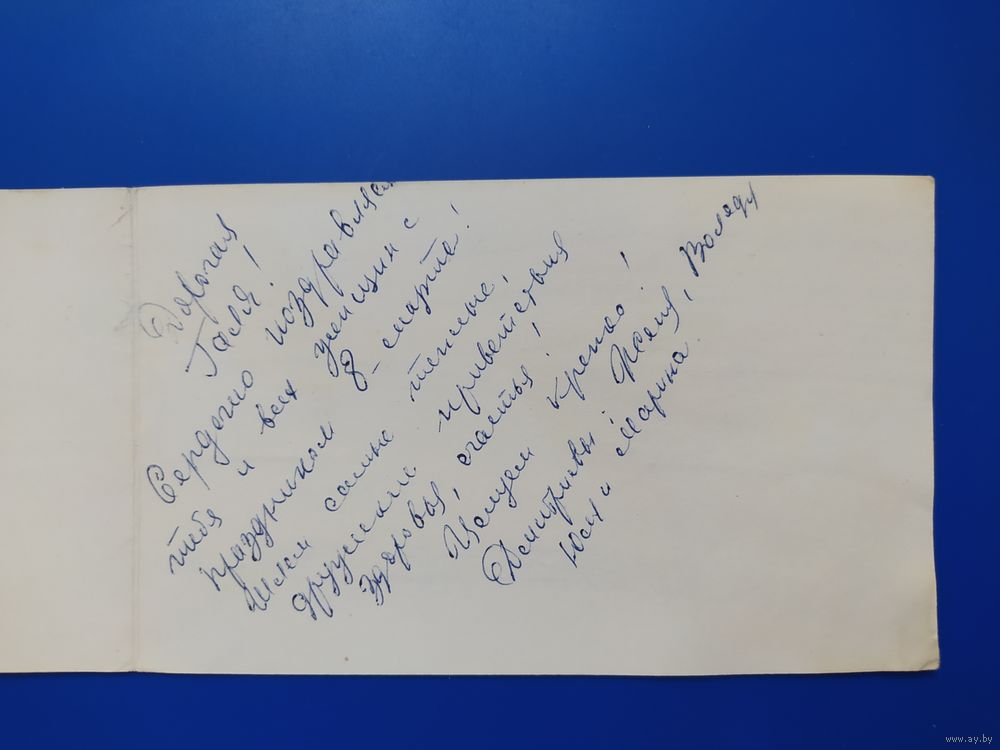 Дорогая
Галя!
Сердечно поздравляем
тебя и всех женщин с
праздником 8 марта!
Шлем самые теплые,
дружеские приветствия!
Здоровья, счастья!
Целуем крепко!
Дмитриевы: Володя
и Марина
www.ay.by